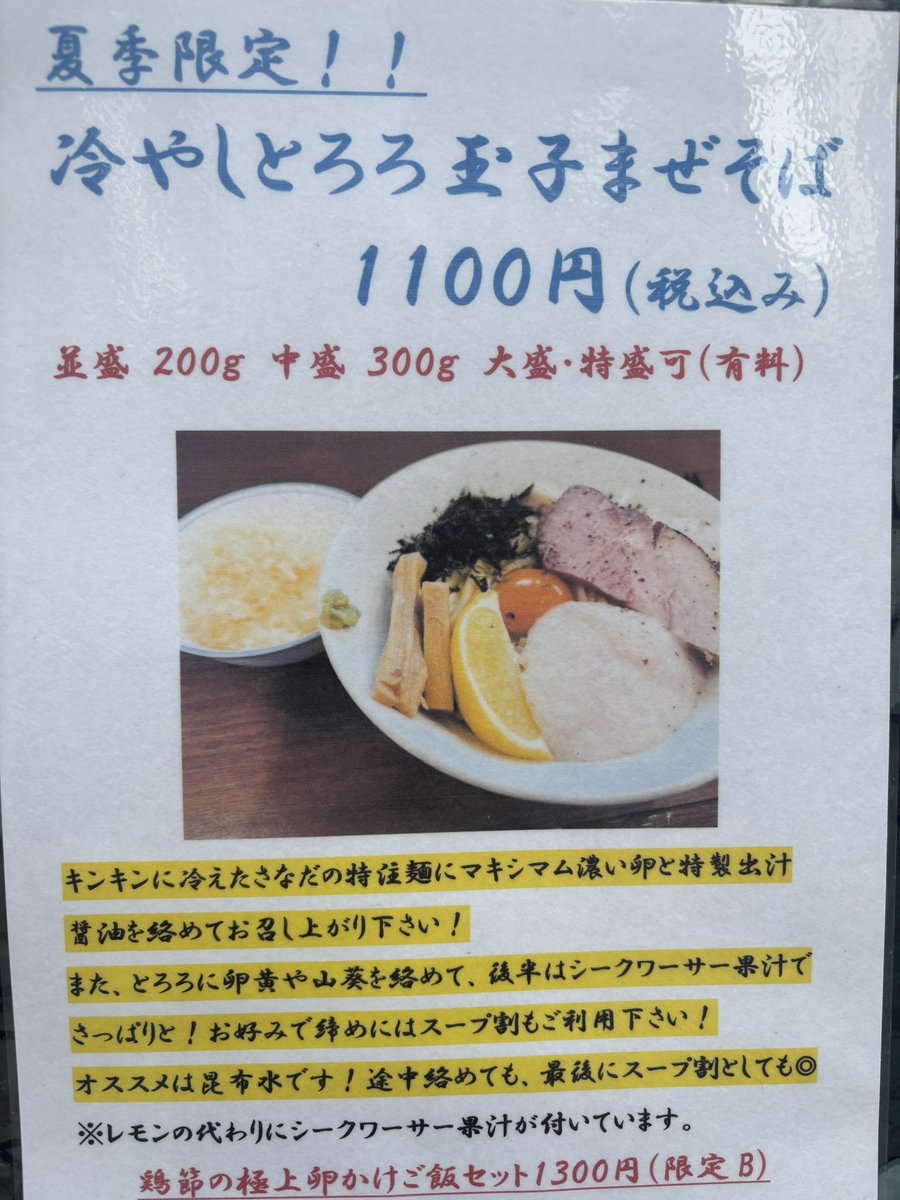 夏季限定！！
冷やしとろろ玉子まぜそば
1100円(税込み)
並盛 200g 中盛 300g 大盛・特盛可(有料)
キンキンに冷えたさなだの特注麺にマキシマム濃い卵と特製出汁
醤油を絡めてお召し上がり下さい！
また、とろろに卵黄や山葵を絡めて、後半はシークワーサー果汁で
さっぱりと！お好みで締めにはスープ割もご利用下さい！
オススメは昆布水です！途中絡めても、最後にスープ割としても◎
※レモンの代わりにシークワーサー果汁が付いています。
鶏節の極上卵かけご飯セット1300円(限定B)